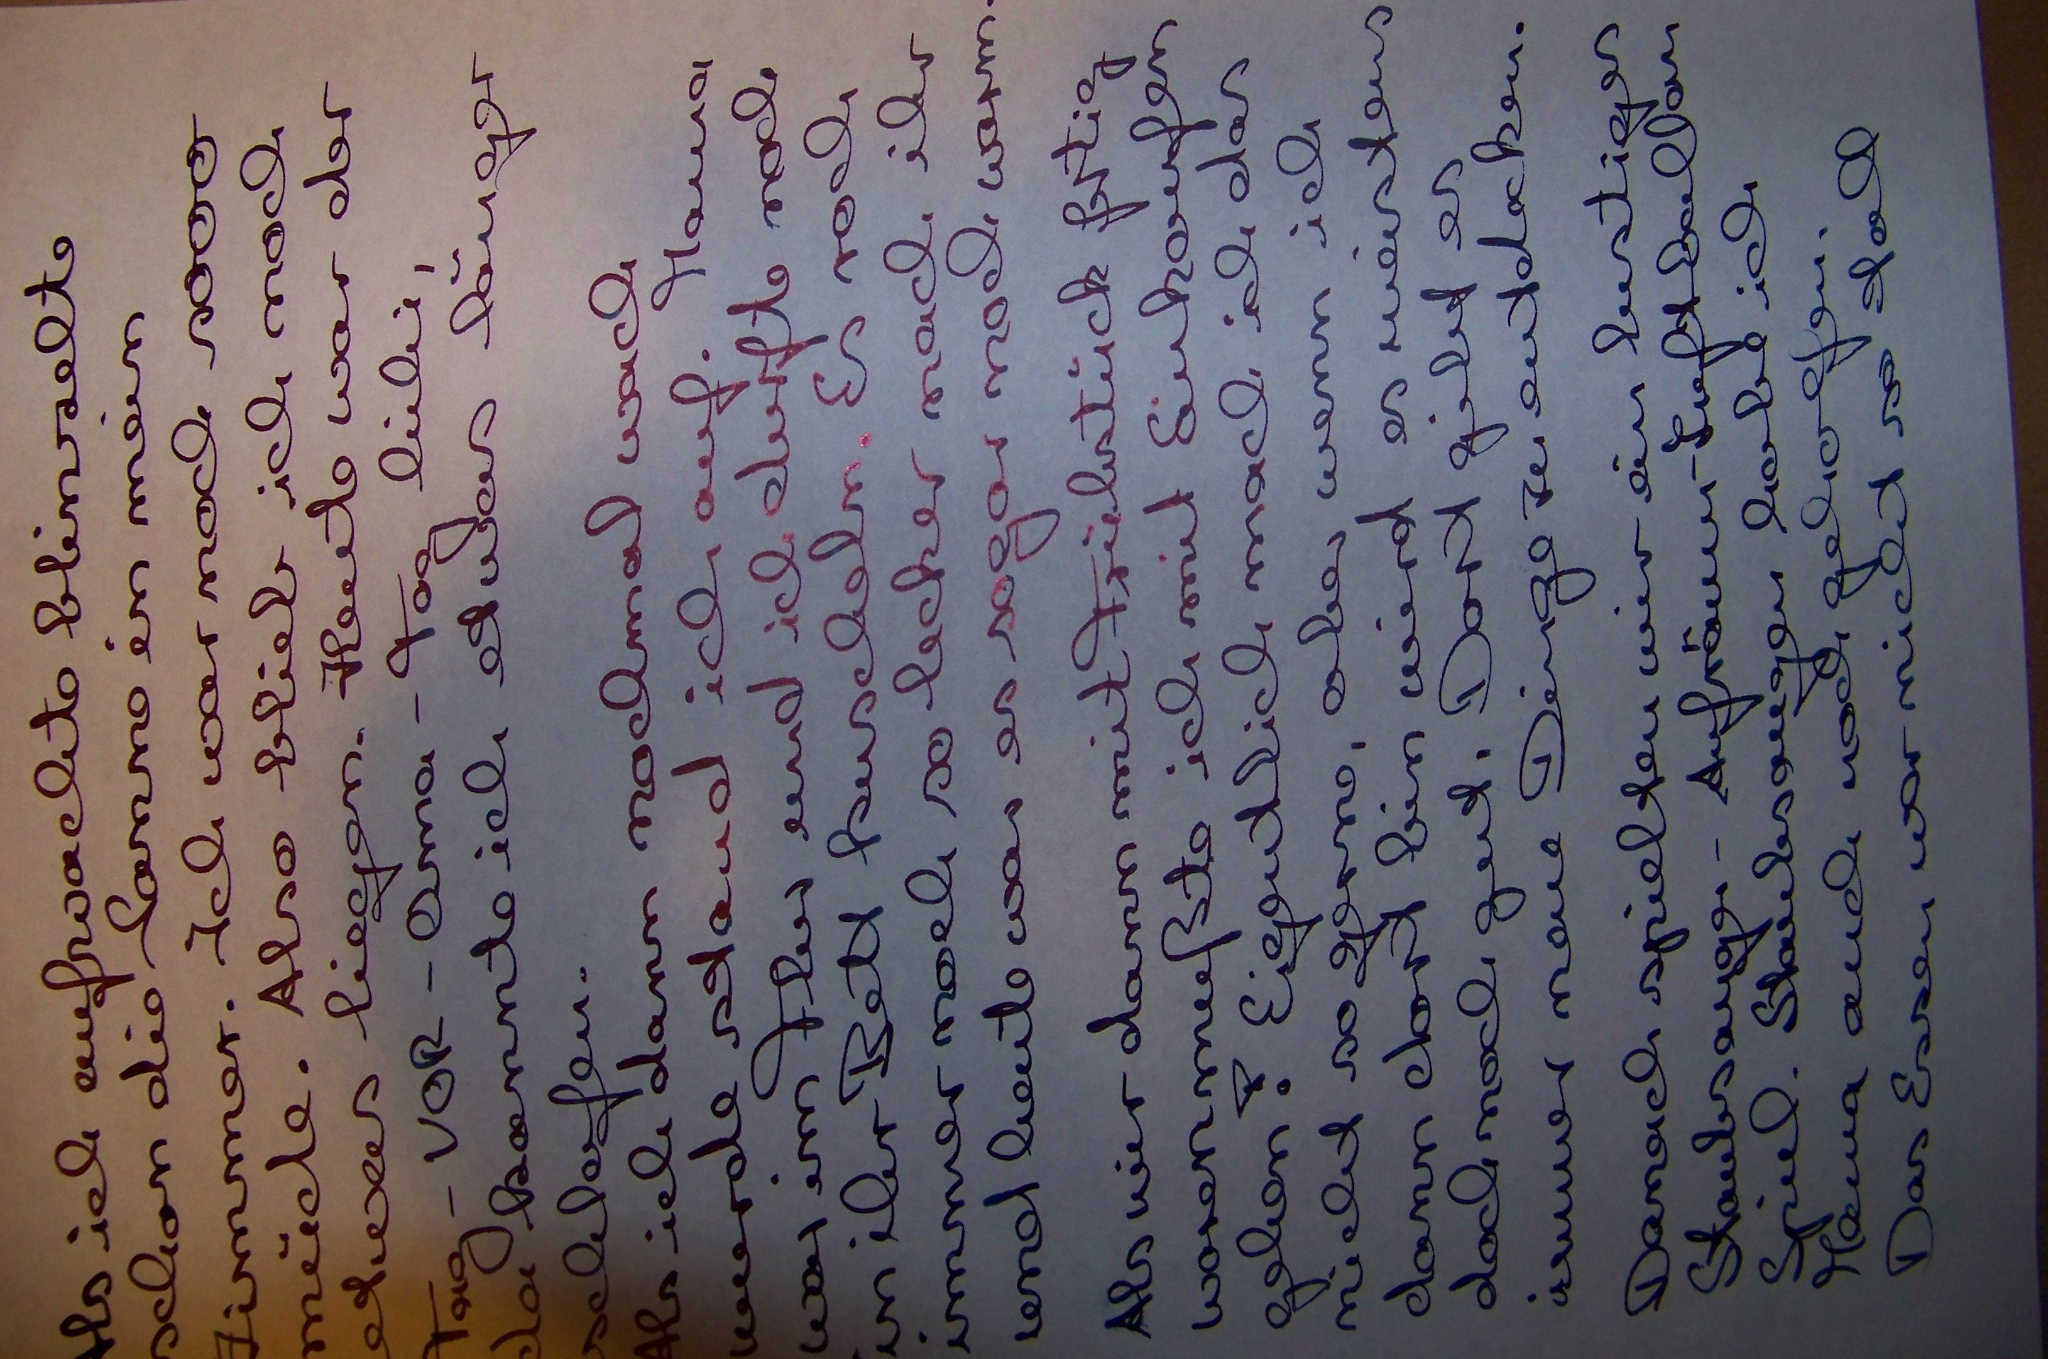 Als ich aufwachte blinzelte
schon die Sonne in mein
Zimmer. Ich war noch sooo
müde. Also blieb ich noch
etwas liegen. Heute war der
Tag-VOR-Oma-Tag
da konnte ich etwas länger
schlafen.
Als ich dann nochmal wach
wurde stand ich auf. Mama
war im Flur und ich durfte noch
in ihr Bett kuscheln. Es roch
immer noch so lecker nach ihr
und heute war es sogar noch warm.
Als wir dann mit Frühstück fertig
waren mußte ich mit Einkaufen
gehen? Eigentlich mach ich das
nicht so gerne, aber wenn ich
dann dort bin wird es meistens
doch noch gut. Dort gibt es
immer neue Dinge zu entdecken.
Danach spielten wir ein lustiges
Staubsauge-Aufräum-Luftballon
Spiel. Staubsaugen habe ich
Mama auch noch geholfen.
Das Essen war nicht so toll